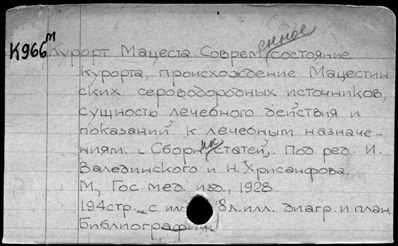 К966м Курорт Мацеста. Современное состояние
курорта, происхождение Мацестин
ских сероводородных источников,
сущность лечебного действия и
показаний к лечебным назначе-
ниям. Сборник статей. Под ред. И.
Валединского и Н. Хрисанфова.
М, Гос. мед. изд., 1928.
194 стр. с ил. 8 л. илл. диагр. и план.
Библиография.